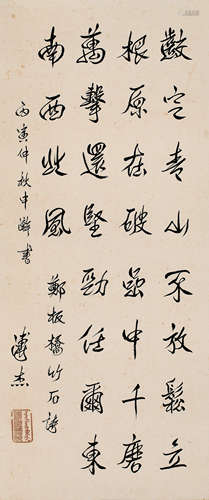 齩定青山不放鬆立
根原在破嵒中千磨
萬擊還堅勁任爾東
南西北風
鄭板橋竹石詩
丙寅仲秋中澣書
溥杰